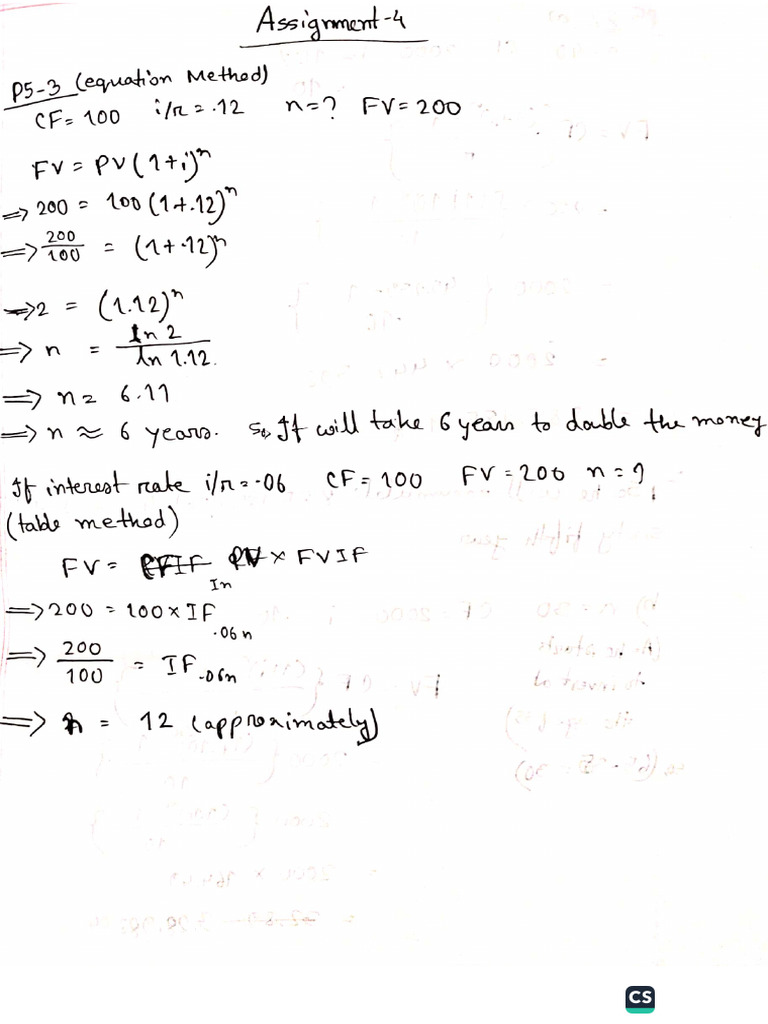 Assignment-4
P5-3 (equation Method)
CF= 100 i/r = .12 n=? FV= 200
FV = PV(1+i)^n
⇒ 200 = 100(1+.12)^n
⇒ 200/100 = (1+.12)^n
→ 2 = (1.12)^n
⇒ n = ln 2 / ln 1.12.
⇒ n = 6.11
⇒ n ≈ 6 years. So, It will take 6 years to double the money
If interest rate i/r = .06 CF= 100 FV = 200 n = ?
(table method)
FV = PV × FVIF In
⇒ 200 = 100 × IF .06n
⇒ 200/100 = IF .06n
⇒ n = 12 (approximately)
CS